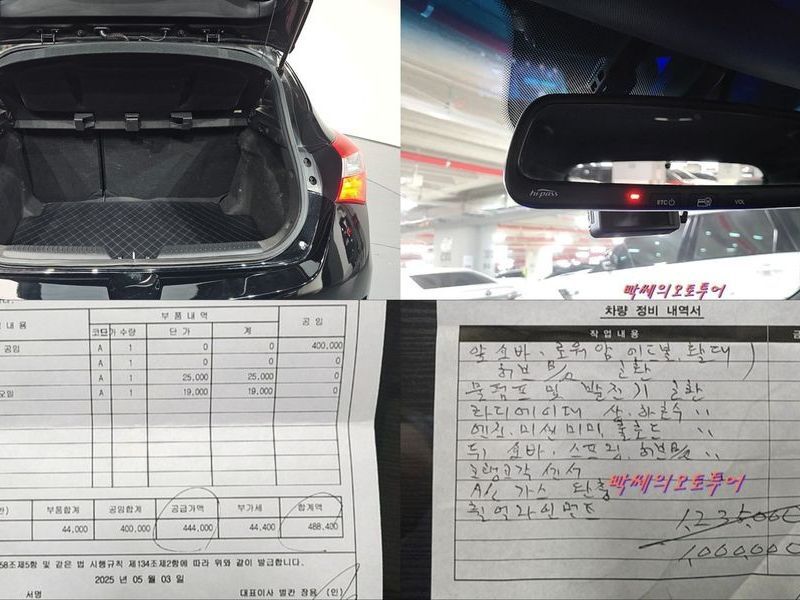 hi-pass
ETC
VOL
빡쎄의오토투어
내용
부품내역
공임
코드
수량
단가
계
공임 A 1 0 0 400,000
A 1 0 0
A 1 25,000 25,000
오일 A 1 19,000 19,000
부품합계 공임합계 공급가액 부가세 합계액
44,000 400,000 444,000 44,400 488,400
58조제5항 및 같은 법 시행규칙 제134조제2항에 따라 위와 같이 발급합니다.
2025 년 05 월 03 일
서명 대표이사 별칸 장용 (인)
차량 정비 내역서
작업내용 금
앞 쇼바. 로워암 엔드볼. 활대
허브 B/a 교환
물펌프 및 발전기 교환
라디에이터 상.하호수 〃
엔진.미션미미 풀호드 〃
뒤 쇼바.스프링.허브B/a 〃
크랭크각 센서
A/c 가스 단충
빡쎄의오토투어
휠얼라인먼트
1,235,000
1,000,000